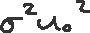 σ²u₀²